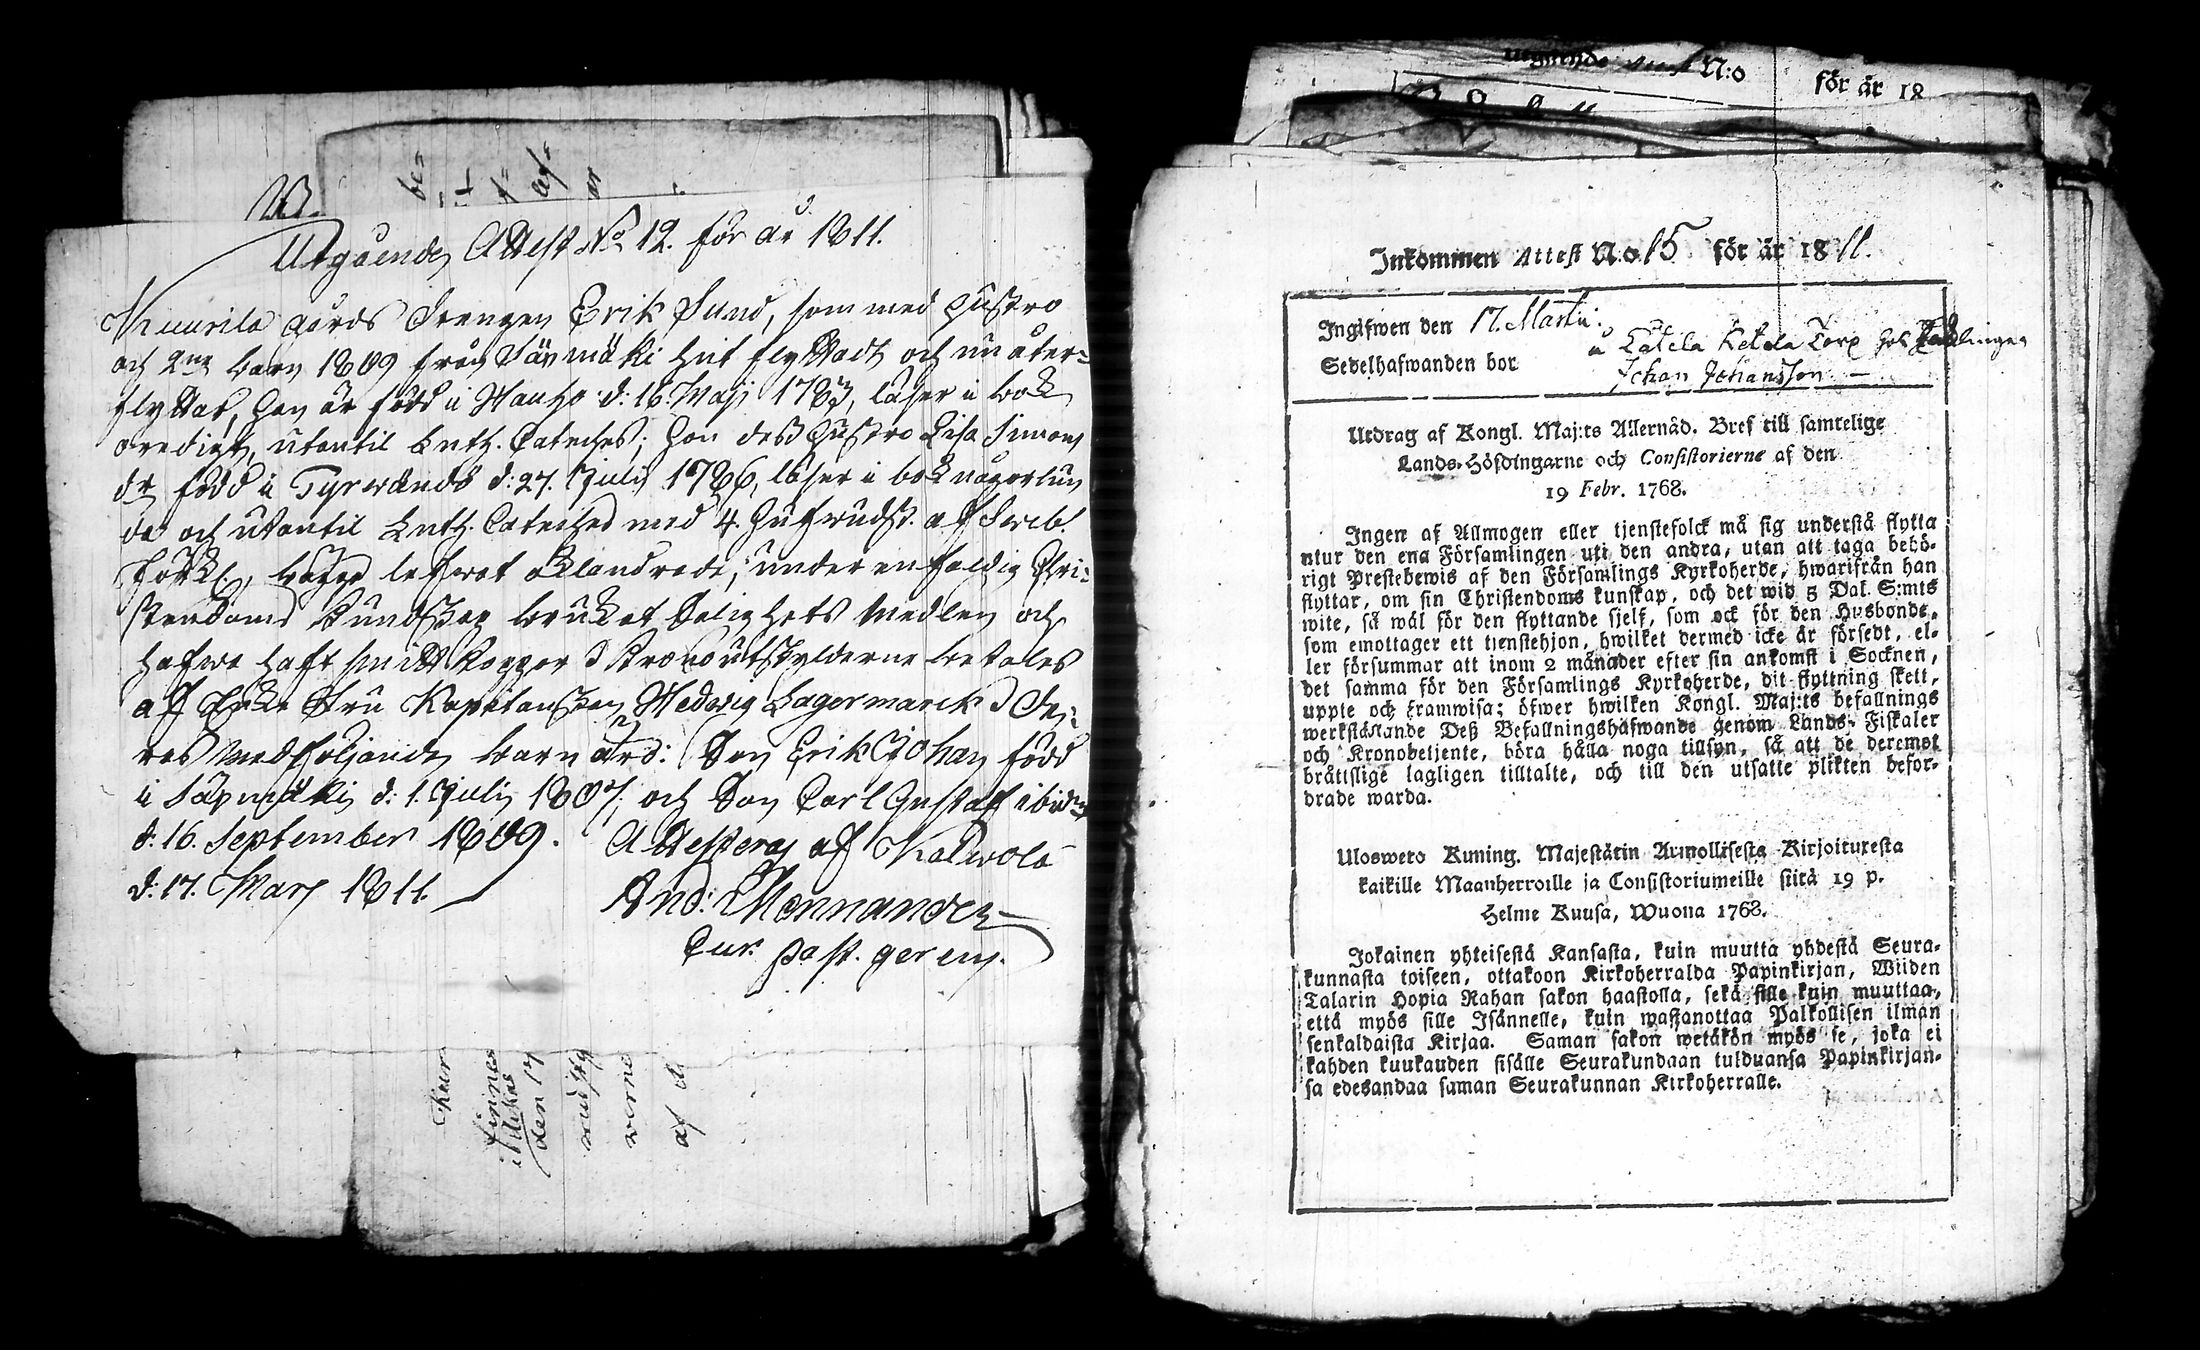 Utgåendes Attest No 12. för år 1811.
Kuurila gårds Drengen Erik Sund, som med Hustro
och 2ne barn 1809 från Säxmäki hit flyttadt och nu åter-
flyttar, han är född i Hauho d: 16. Maji 1783, läser i bok
oredigt, utantil Luth. Cateches; Hon dess Hustro Lisa Simons
dr född i Tyrwändö d: 27. Julij 1786, läser i bok någorlun
da och utantil Luth. Cateches med 4. Hufwudst. af Swebel.
Förkl., bägge lefwat oklandrade, under enfaldig Chri-
stendoms Kundskap brukat Salighets Medlen och
hafwa haft smitt Koppor. Kronoutskylderne betales
af Enke Fru Kapitenskan Hedvig Lagermarck. De-
ras Medföljande barn äro: Son Erik Johan född
i Säxmäki d: 1. Julij 1807, och Son Carl Gustaf ibidm
d: 16. September 1809. Attesteras af Kalwola
d: 17. Mars 1811.
And: Mennander
Cur. past. gerens.
finnes
den 17
af d
Utgående Attest N:o för år 18
Inkommen Attest N:o 15 för år 1811.
Ingifwen den 17. Martii.
Sedelhafwanden bor å Torp hos
Johan Johansson
Utdrag af Kongl. Maj:ts Allernåd. Bref till samtelige
Lands-Höfdingarne och Consistorierne af den
19 Febr. 1768.
Ingen af Allmogen eller tjenstefolck må sig understå flytta
utur den ena Församlingen uti den andra, utan att taga behö-
rigt Prestebewis af den Församlings Kyrkoherde, hwarifrån han
flyttar, om sin Christendoms kunskap, och det wid 5 Dal. S:mts
wite, så wäl för den flyttande sjelf, som ock för den Husbonde,
som emottager ett tjenstehjon, hwilket dermed icke är försedt, el-
ler försummar att inom 2 månader efter sin ankomst i Socknen,
det samma för den Församlings Kyrkoherde, dit flyttning skett,
uppte och framwisa; öfwer hwilken Kongl. Maj:ts befallnings
werkställande Deß Befallningshafwande genom Lands-Fiskaler
och Kronobetjente, böra hålla noga tillsyn, så att de deremot
bråttslige lagligen tilltalte, och till den utsatte plikten befor-
drade warda.
Uloswero Kuning. Majestätin Armollisesta Kirjoituresta
kaikille Maanherroille ja Consistoriumeille siitä 19 p.
Helme Kuusa, Wuona 1768.
Jokainen yhteisestä Kansasta, kuin muutta yhdestä Seura-
kunnasta toiseen, ottakoon Kirkoherralda Papinkirjan, Wiiden
Talarin Hopia Rahan sakon haastolla, sekä sille kuin muuttaa,
että myös sille Isännelle, kuin wastanottaa Palkollisen ilman
senkaldaista Kirjaa. Saman sakon wetäkön myös se, joka ei
kahden kuukauden sisälle Seurakundaan tulduansa Papinkirjan-
sa edesandaa saman Seurakunnan Kirkoherralle.